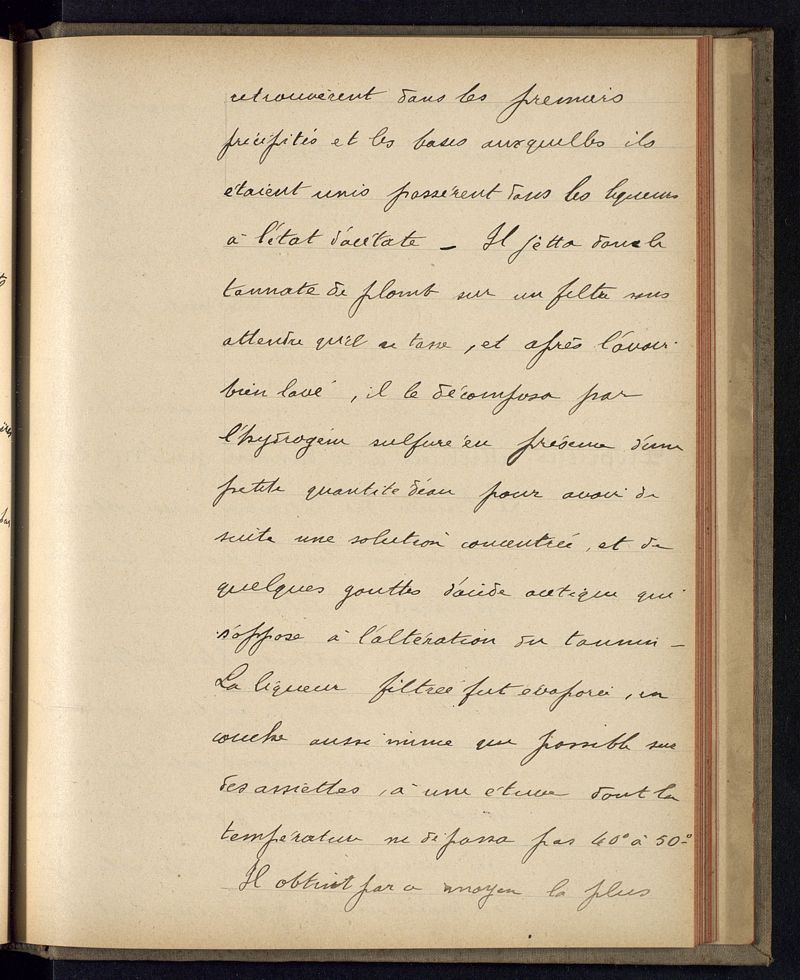 retrouvèrent dans les premiers
précipités et les bases auxquelles ils
étaient unis passèrent dans les liqueurs
à l'état d'acétate - Il jetta donc le
tannate de plomb sur un filtre sans
attendre qu'il se tasse, et après l'avoir
bien lavé, il le décomposa par
l'hydrogène sulfuré en présence d'une
petite quantité d'eau pour avoir de
suite une solution concentrée, et de
quelques gouttes d'acide acétique qui
s'oppose à l'altération du tannin -
La liqueur filtrée fut évaporée, en
couche aussi mince que possible sur
des assiettes, à une étuve dont la
température ne dépassa pas 40° à 50°
Il obtint par ce moyen la plus